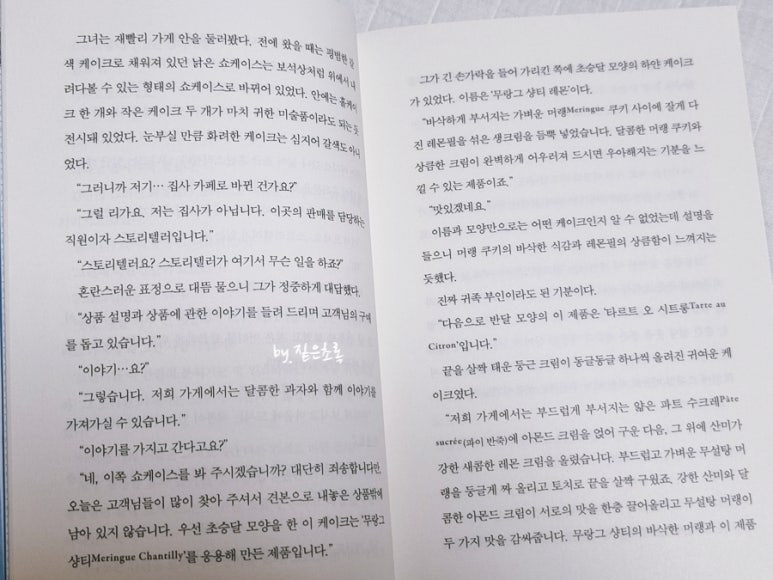 그녀는 재빨리 가게 안을 둘러봤다. 전에 왔을 때는 평범한 갈
색 케이크로 채워져 있던 낡은 쇼케이스는 보석상처럼 위에서 내
려다볼 수 있는 형태의 쇼케이스로 바뀌어 있었다. 안에는 홀케이
크 한 개와 작은 케이크 두 개가 마치 귀한 미술품이라도 되는 듯
전시돼 있었다. 눈부실 만큼 화려한 케이크는 심지어 갈색도 아니
었다.
“그러니까 저기… 집사 카페로 바뀐 건가요?”
“그럴 리가요. 저는 집사가 아닙니다. 이곳의 판매를 담당하는
직원이자 스토리텔러입니다.”
“스토리텔러요? 스토리텔러가 여기서 무슨 일을 하죠?”
혼란스러운 표정으로 대뜸 물으니 그가 정중하게 대답했다.
“상품 설명과 상품에 관한 이야기를 들려 드리며 고객님의 구매
를 돕고 있습니다.”
“이야기…요?”
“그렇습니다. 저희 가게에서는 달콤한 과자와 함께 이야기를
가져가실 수 있습니다.”
“이야기를 가지고 간다고요?”
“네, 이쪽 쇼케이스를 봐 주시겠습니까? 대단히 죄송합니다만,
오늘은 고객님들이 많이 찾아 주셔서 견본으로 내놓은 상품밖에
남아 있지 않습니다. 우선 초승달 모양을 한 이 케이크는 ‘무랑그
샹티Meringue Chantilly’를 응용해 만든 제품입니다.”
by 짙은초록
그가 긴 손가락을 들어 가리킨 쪽에 초승달 모양의 하얀 케이크
가 있었다. 이름은 ‘무랑그 샹티 레몬’이다.
“바삭하게 부서지는 가벼운 머랭Meringue 쿠키 사이에 잘게 다
진 레몬필을 섞은 생크림을 듬뿍 넣었습니다. 달콤한 머랭 쿠키와
상큼한 크림이 완벽하게 어우러져 드시면 우아해지는 기분을 느
낄 수 있는 제품이죠.”
“맛있겠네요.”
이름과 모양만으로는 어떤 케이크인지 알 수 없었는데 설명을
들으니 머랭 쿠키의 바삭한 식감과 레몬필의 상큼함이 느껴지는
듯했다.
진짜 귀족 부인이라도 된 기분이다.
“다음으로 반달 모양의 이 제품은 ‘타르트 오 시트롱Tarte au
Citron’입니다.”
끝을 살짝 태운 둥근 크림이 동글동글 하나씩 올려진 귀여운 케
이크였다.
“저희 가게에서는 부드럽게 부서지는 얇은 파트 수크레Pâte
sucrée(파이 반죽)에 아몬드 크림을 얹어 구운 다음, 그 위에 산미가
강한 새콤한 레몬 크림을 올렸습니다. 부드럽고 가벼운 무설탕 머
랭을 둥글게 짜 올리고 토치로 끝을 살짝 구웠죠. 강한 산미와 달
콤한 아몬드 크림이 서로의 맛을 한층 끌어올리고 무설탕 머랭이
두 가지 맛을 감싸줍니다. 무랑그 샹티의 바삭한 머랭과 이 제품